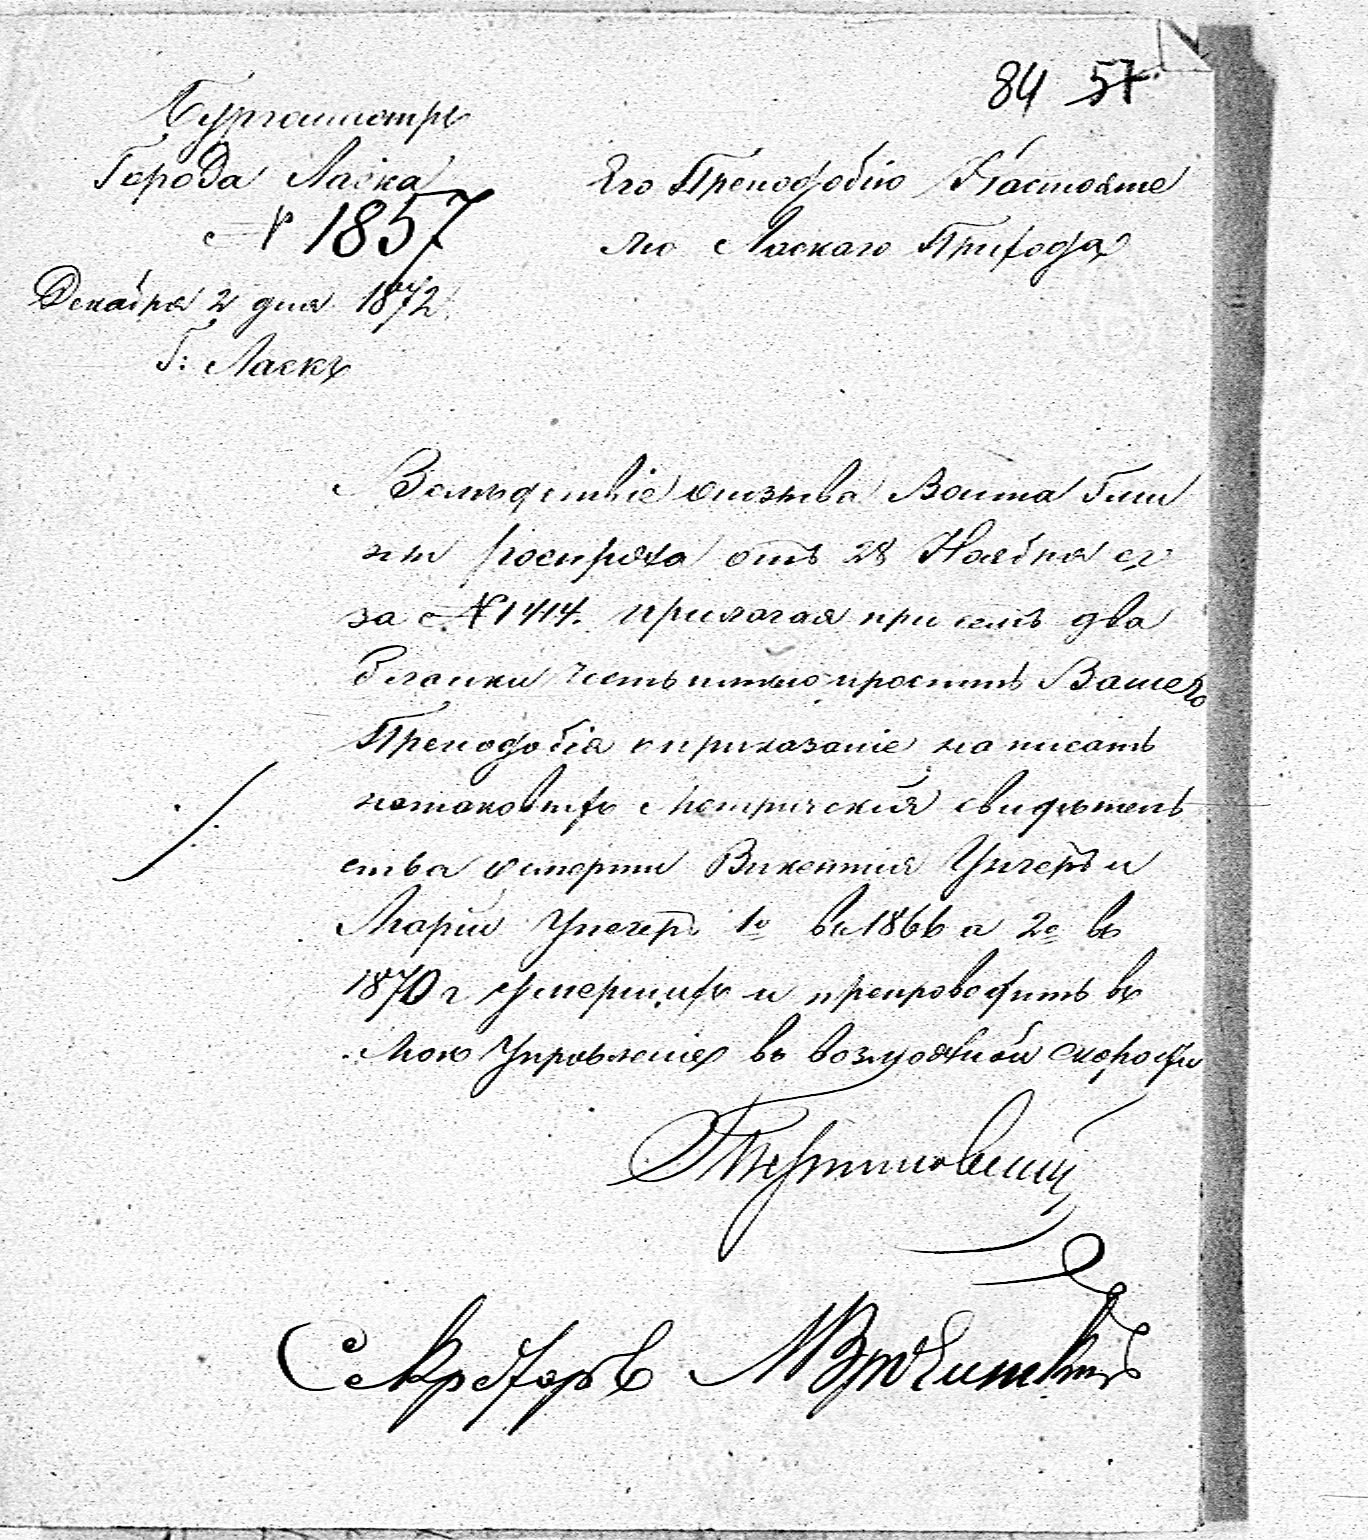 84 57
Бургомистръ
Города Ласка
№ 1857
Декабря 2 дня 1872
Г: Ласкъ
Его Преподобію Настояте
лю Ласкаго Прихода
Вслѣдствіе отзыва Войта Гми
ны отъ 28 Ноября с г
за № 1414. прилагая при семъ два
бланки честь имѣю просить Вашего
Преподобія приказаніе написать
на таковыхъ Метрическія свидѣтель
ства о смерти Викентія и
Маріи 1º въ 1866 а 2º въ
1870 г умершихъ и препроводить въ
Мое Управленіе въ возможной скорости
Секретарь